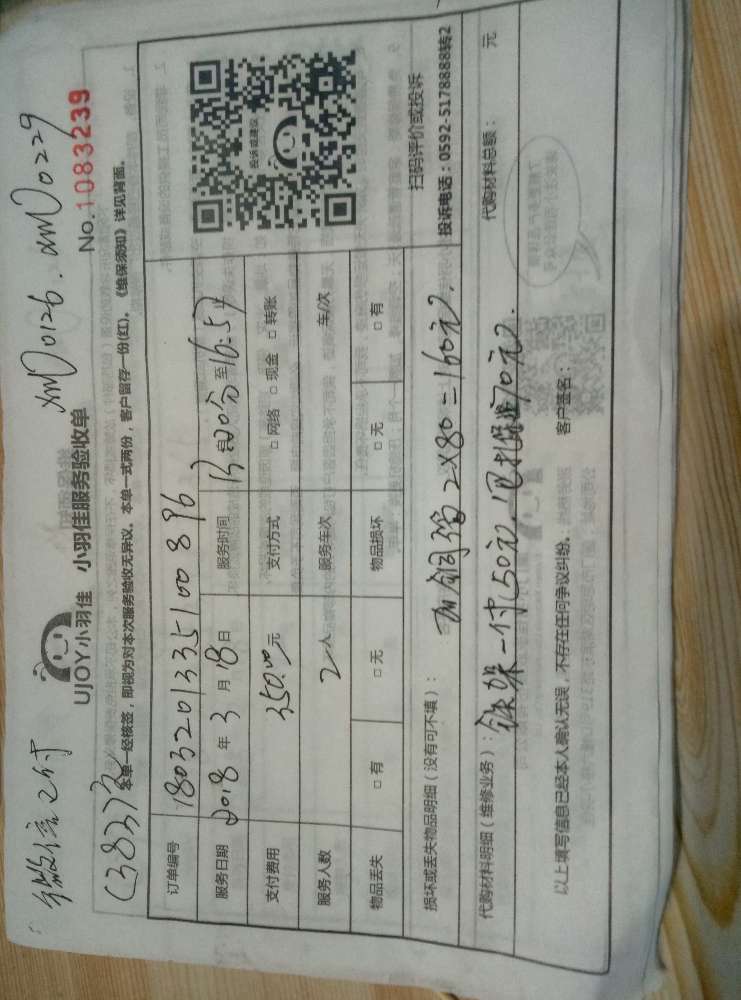 微信已付 XMD0126. XMD0229
UJOY小羽佳 小羽佳服务验收单 No.1083239
本单一经核签，即视为对本次服务验收无异议。本单一式两份，客户留存一份(红)。《维保须知》详见背面。
订单编号 1803201335100896
服务日期 2018 年 3 月 18 日 服务时间 自 至 16:57 止
支付费用 350.00 元 支付方式 □ 网络 □ 现金 □ 转账
服务人数 2人 服务车次 车/次
物品丢失 □ 有 □ 无 物品损坏 □ 无 □ 有
投诉或建议
扫码评价或投诉
投诉电话：0592-5178888转2
损坏或丢失物品明细（没有可不填）： 加铜管 2×80=160元.
代购材料明细（维修业务）： 铁架一付(50元. 70元). 代购材料总额： 元
以上填写信息已经本人确认无误，不存在任何争议纠纷。 客户签名：